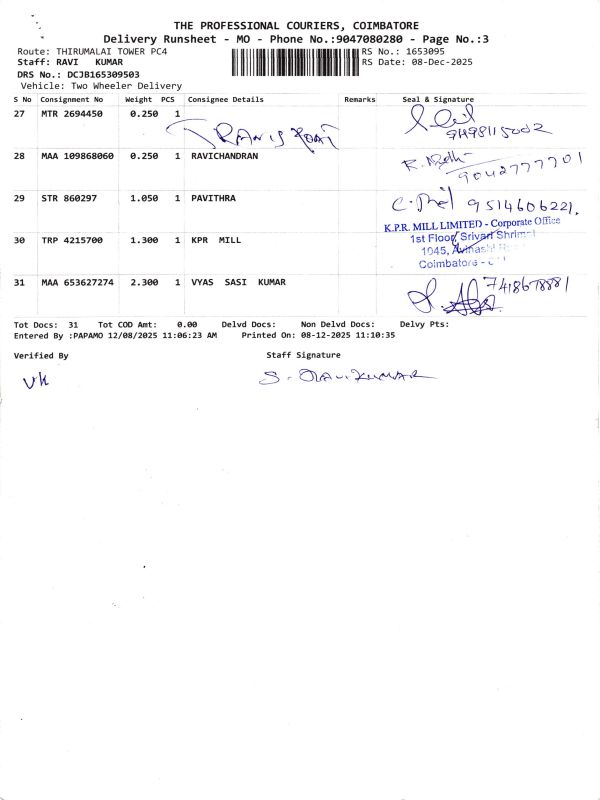 THE PROFESSIONAL COURIERS, COIMBATORE
Delivery Runsheet - MO - Phone No.:9047080280 - Page No.:3
Route: THIRUMALAI TOWER PC4 RS No.: 1653095
Staff: RAVI KUMAR RS Date: 08-Dec-2025
DRS No.: DCJB165309503
Vehicle: Two Wheeler Delivery
S No Consignment No Weight PCS Consignee Details Remarks Seal & Signature
27 MTR 2694450 0.250 1
28 MAA 109868060 0.250 1 RAVICHANDRAN
9042777701
29 STR 860297 1.050 1 PAVITHRA
9514606221.
30 TRP 4215700 1.300 1 KPR MILL
K.P.R. MILL LIMITED - Corporate Office
1st Floor, Srivari
1045, Avinashi
Coimbatore -
31 MAA 653627274 2.300 1 VYAS SASI KUMAR
Tot Docs: 31 Tot COD Amt: 0.00 Delvd Docs: Non Delvd Docs: Delvy Pts:
Entered By :PAPAMO 12/08/2025 11:06:23 AM Printed On: 08-12-2025 11:10:35
Verified By Staff Signature
VK